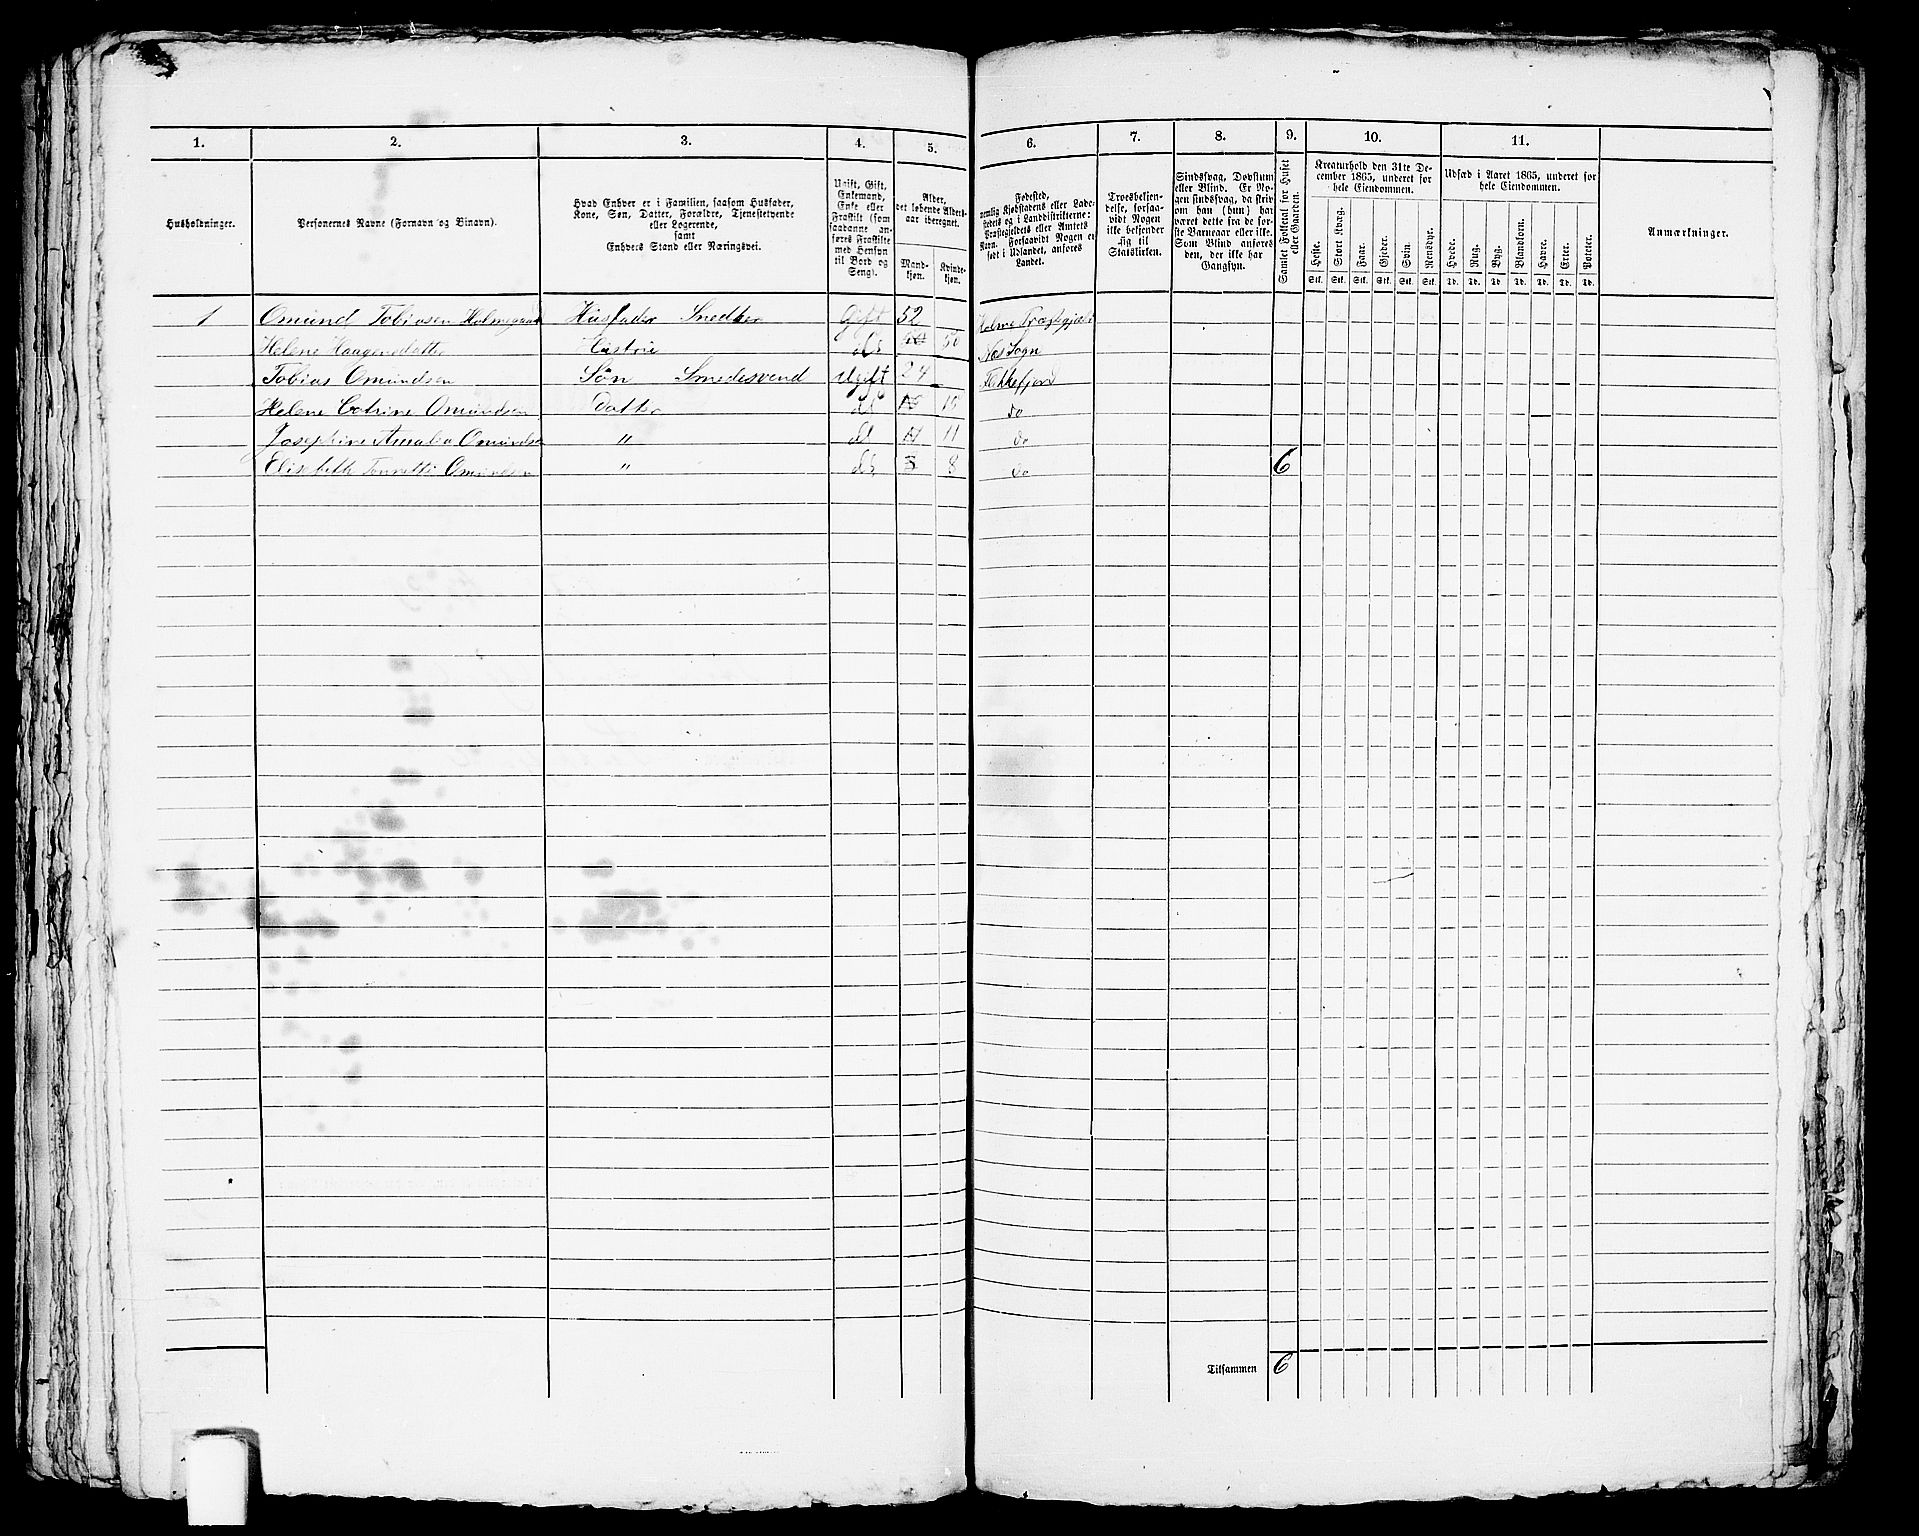 1. 2. 3. 4. 5. 6. 7. 8. 9. 10. 11.
Husholdninger.
Personernes Navne (Fornavn og Binavn).
Hvad Enhver er i Familien, saasom Husfader,
Kone, Søn, Datter, Forældre, Tjenestetyende
eller Logerende,
samt
Enhvers Stand eller Næringsvei.
Ugift, Gift,
Enkemand,
Enke eller
Fraskilt (som
saadanne an-
føres Fraskilte
med Hensyn
til Bord og
Seng).
Alder,
det løbende Alders-
aar iberegnet.
Mand-
kjøn.
Kvinde-
kjøn.
Fødested,
nemlig Kjøbstadens eller Lade-
stedets og i Landdistrikterne:
Præstegjeldets eller Amtets
Navn. Forsaavidt Nogen er
født i Udlandet, anføres
Landet.
Troesbekjen-
delse, forsaa-
vidt Nogen
ikke bekjender
sig til
Statskirken.
Sindssvag, Døvstum
eller Blind. Er No-
gen sindssvag, da skriv
om han (hun) har
været dette fra de før-
ste Barneaar eller ikke.
Som Blind anføres
den, der ikke har
Gangsyn.
Samlet Folketal for Huset
eller Gaarden.
Kreaturhold den 31te De-
cember 1865, underet for
hele Eiendommen.
Heste. Stort Kvæg. Faar. Gjeder. Svin. Rensdyr.
Stk. Stk. Stk. Stk. Stk. Stk.
Udsæd i Aaret 1865, underet for
hele Eiendommen.
Hvede. Rug. Byg. Blandkorn. Havre. Erter. Poteter.
Td. Td. Td. Td. Td. Td. Td.
Anmærkninger.
1 Omund Tobiasen Husfader Gift 52 Holme Præstegjæld
Helene Haagensdatter Hustru do 50 Næs Sogn
Tobias Omundsen Søn Smedesvend Ugift 24 Flekkefjord
Helene Catrine Omundsen Datter do 15 do
Josephine Amalia Omundsen " do 11 do
Elisabeth Omundsen " do 8 do 6
Tilsammen 6